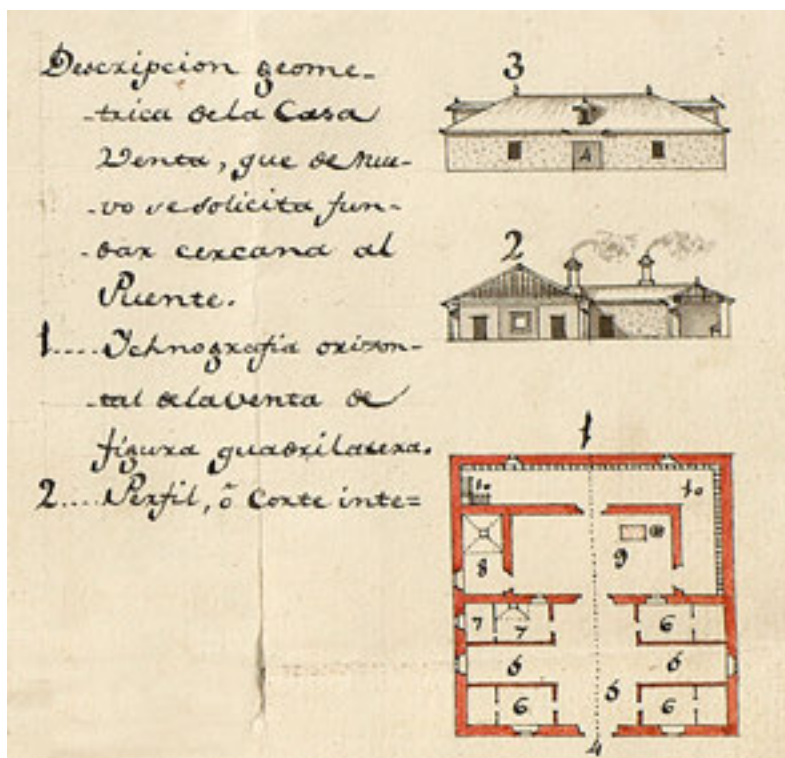 Descripcion geome-
-trica dela Casa
Venta, que de nue-
-vo se solicita fun-
-dar cercana al
Puente.
1....Ichnografia orizon-
-tal dela venta de
figura quadrilatera.
2....Perfil, ò Corte inte=
3
1
A
2
1
10 10
8 9
7 7 6
5 5
6 5 6
4